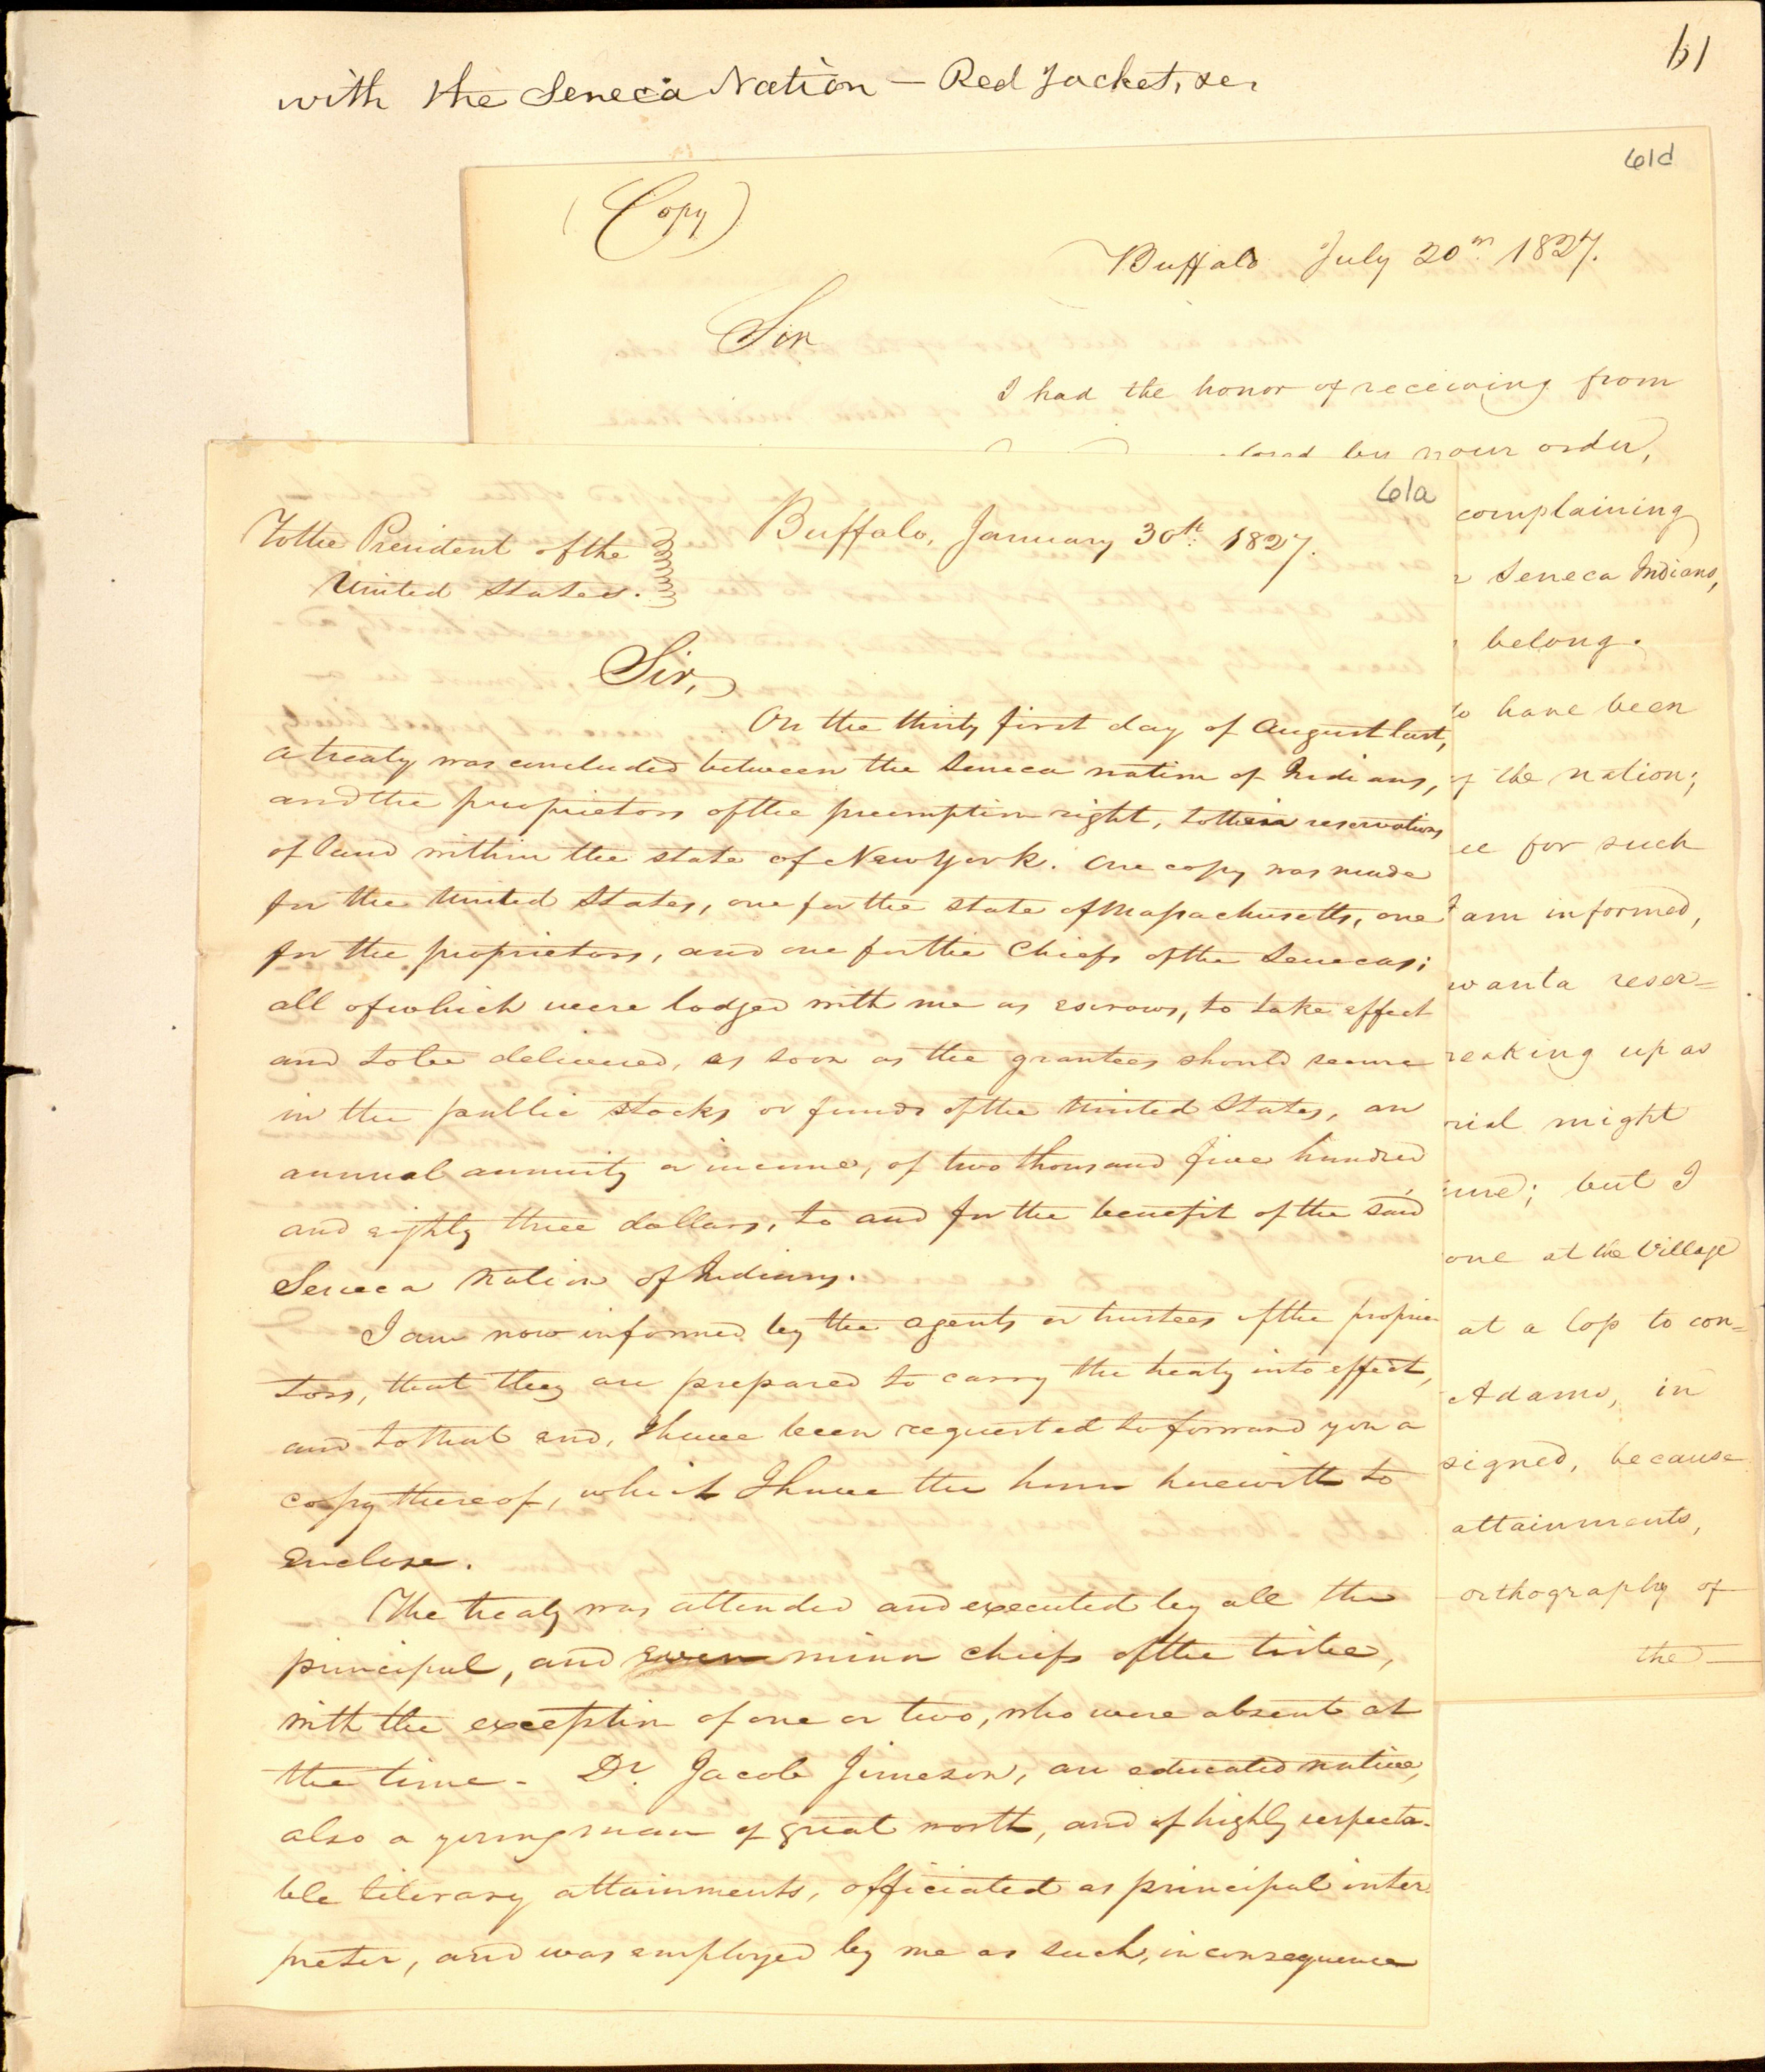 61
with the Seneca Nation — Red Jacket, &c.
61d
(Copy)
Buffalo July 20th 1827.
Sir
I had the honor of receiving from
by your order,
complaining
Seneca Indians,
belong.
to have been
of the nation;
for such
I am informed,
wanta reser=
reaking up as
rial might
ured; but I
one at the Village
at a loss to con=
Adams, in
signed, because
attainments,
orthography of
the
61a
Buffalo, January 30th 1827.
To the President of the
United States.
Sir,
On the thirty first day of August last,
a treaty was concluded between the Seneca nation of Indians,
and the proprietors of the preemption right, to their reservations
of land within the state of New York. One copy was made
for the United States, one for the state of Massachusetts, one
for the proprietors, and one for the Chiefs of the Senecas;
all of which were lodged with me as escrows, to take effect
and to be delivered, as soon as the grantees should secure
in the public stocks or funds of the United States, an
annual annuity or income, of two thousand five hundred
and eighty three dollars, to and for the benefit of the said
Seneca Nation of Indians.
I am now informed by the agents or trustees of the proprie-
tors, that they are prepared to carry the treaty into effect,
and to that end, I have been requested to forward you a
copy thereof, which I have the honor herewith to
enclose.
The treaty was attended and executed by all the
principal, and even minor chiefs of the tribe,
with the exception of one or two, who were absent at
the time - Dr. Jacob Jimeson, an educated native,
also a young man of great worth, and of highly respecta-
ble literary attainments, officiated as principal inter-
preter, and was employed by me as such, in consequence